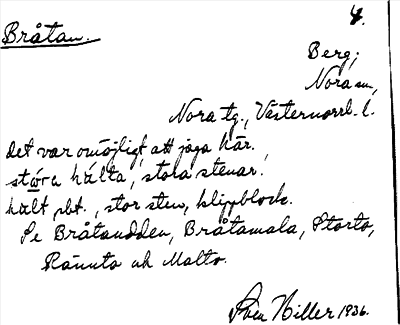 4.
Bråtan.
Berg;
Nora sn,
Nora tg., Västernorrl. l.
det var omöjligt att jaga här,
stora hälta, stora stenar,
hält, bt., stor sten, klippblock.
Se Bråtaudden, Bråtamala, Storto,
Rännta och Malto.
Sven Hiller 1936.